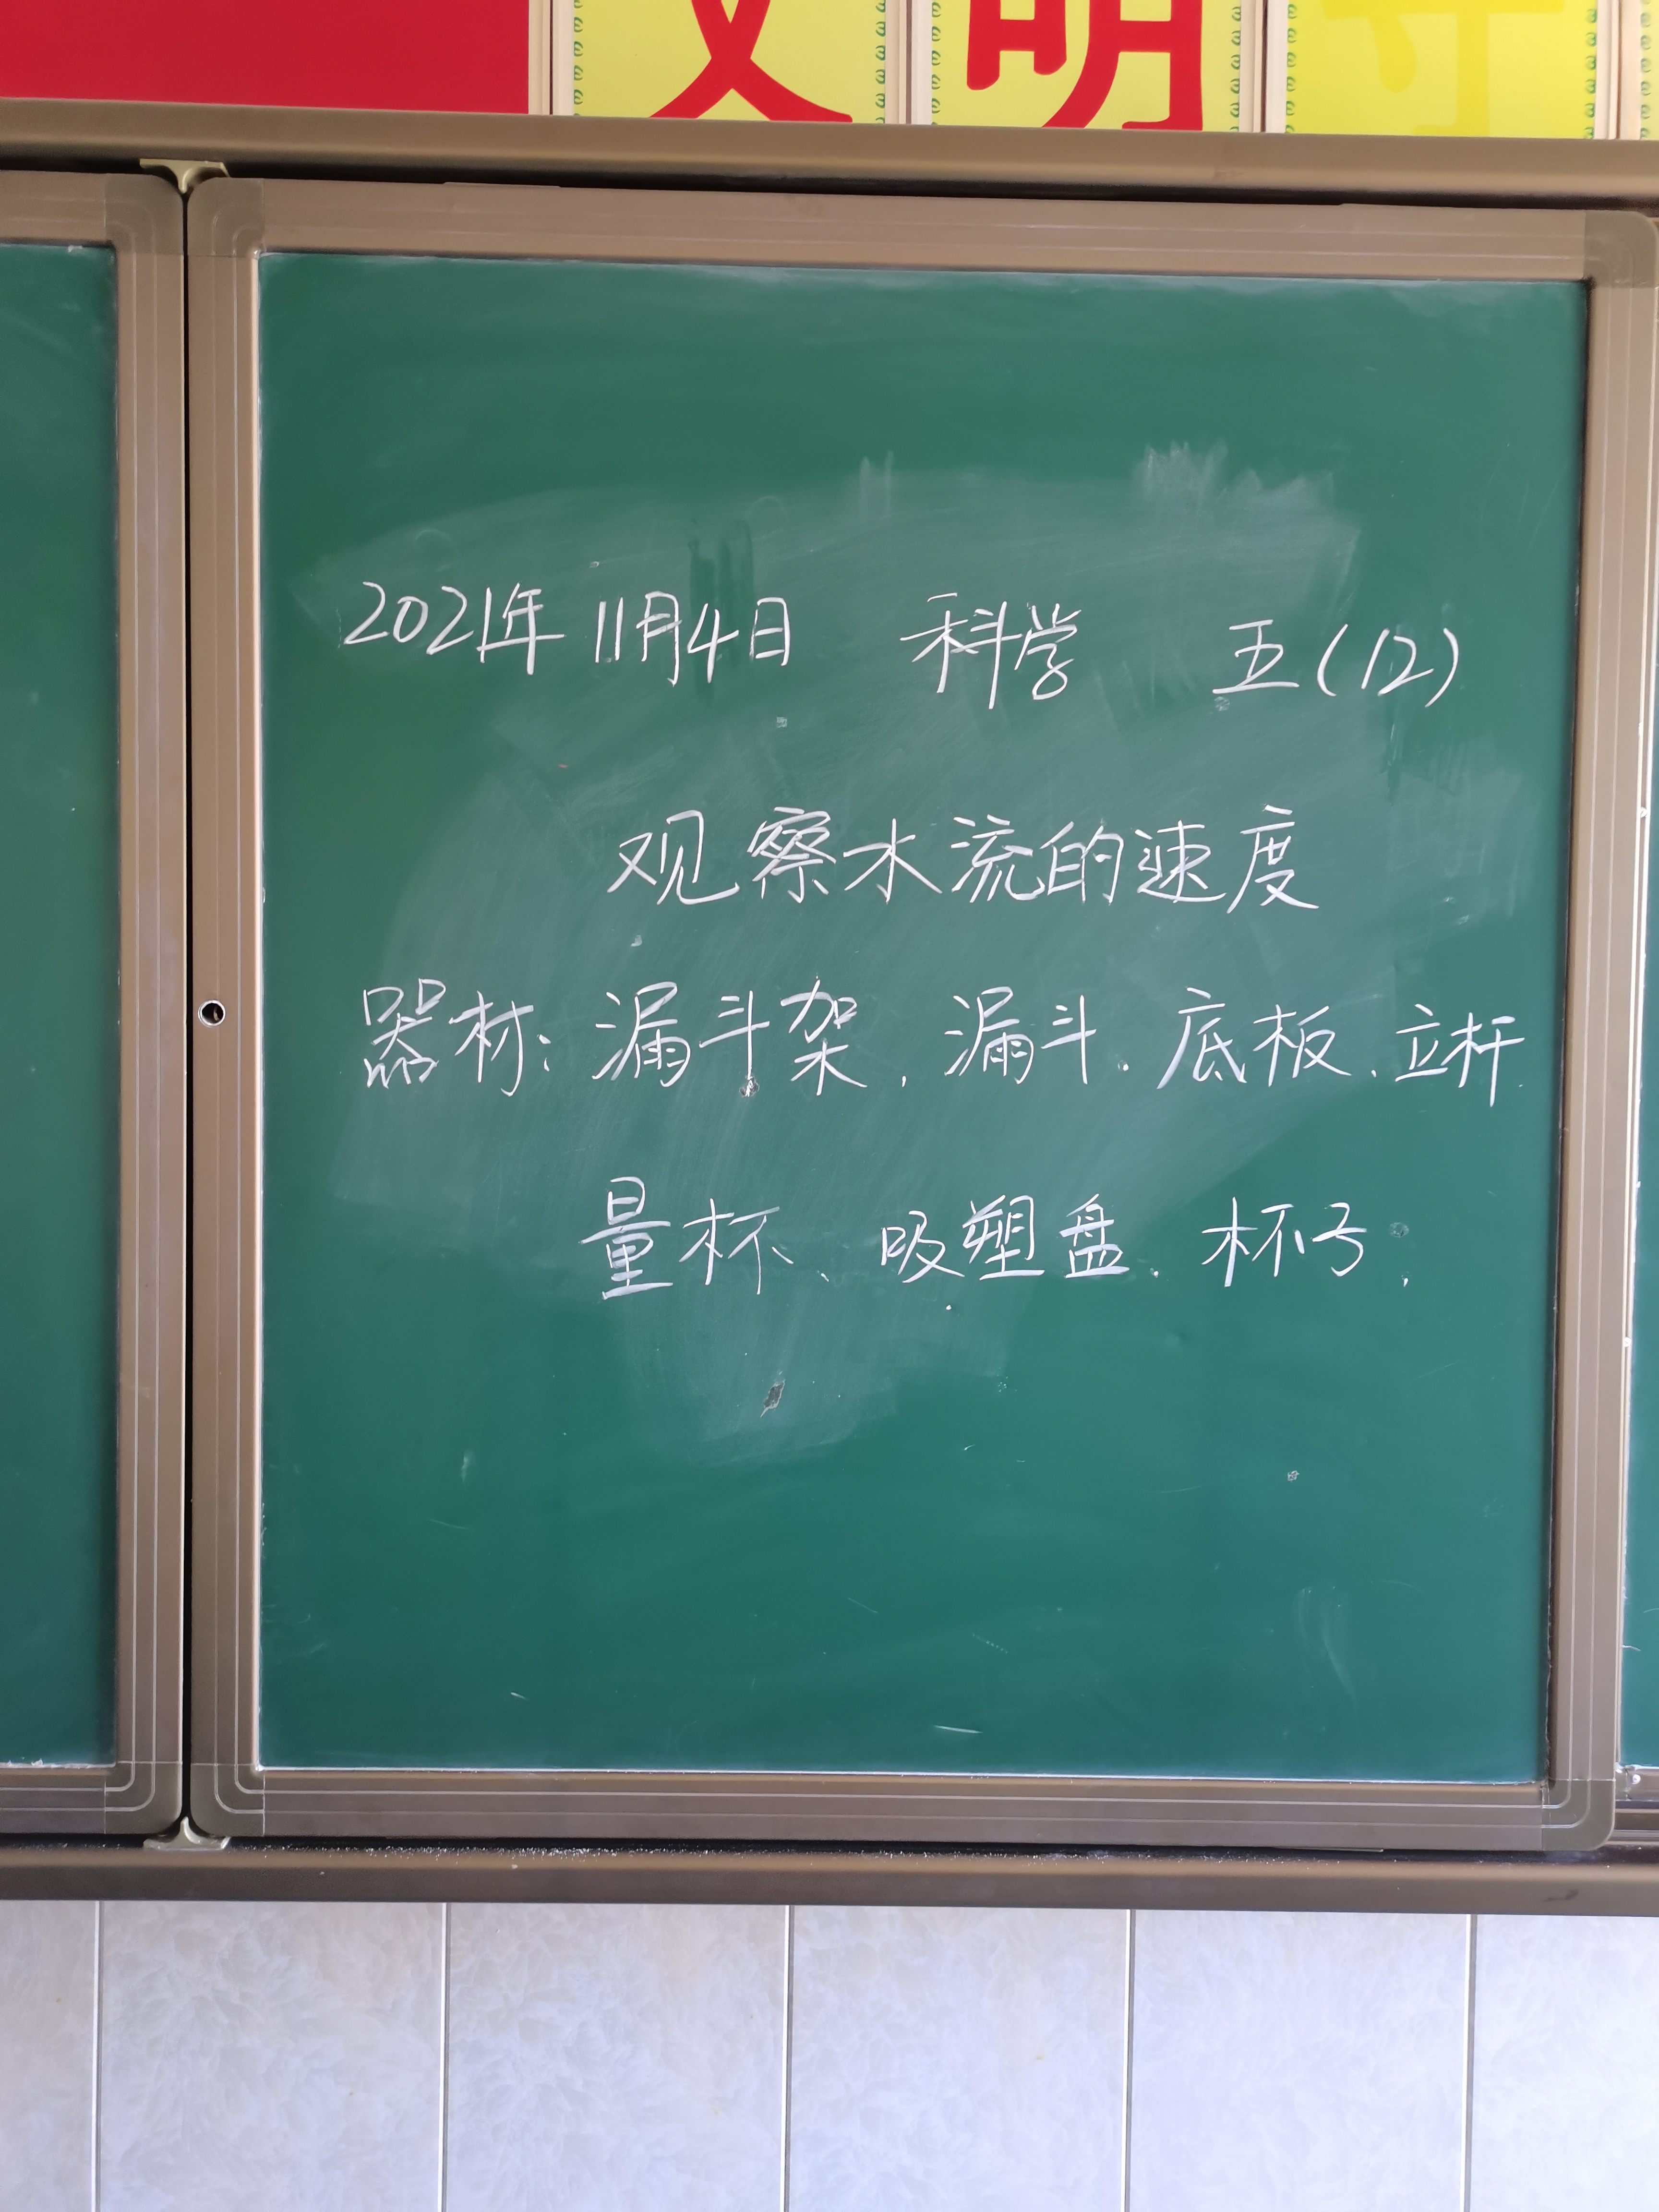 文明
2021年11月4日 科学 五(12)
观察水流的速度
器材：漏斗架、漏斗、底板、立杆、
量杯、吸塑盘、杯号；